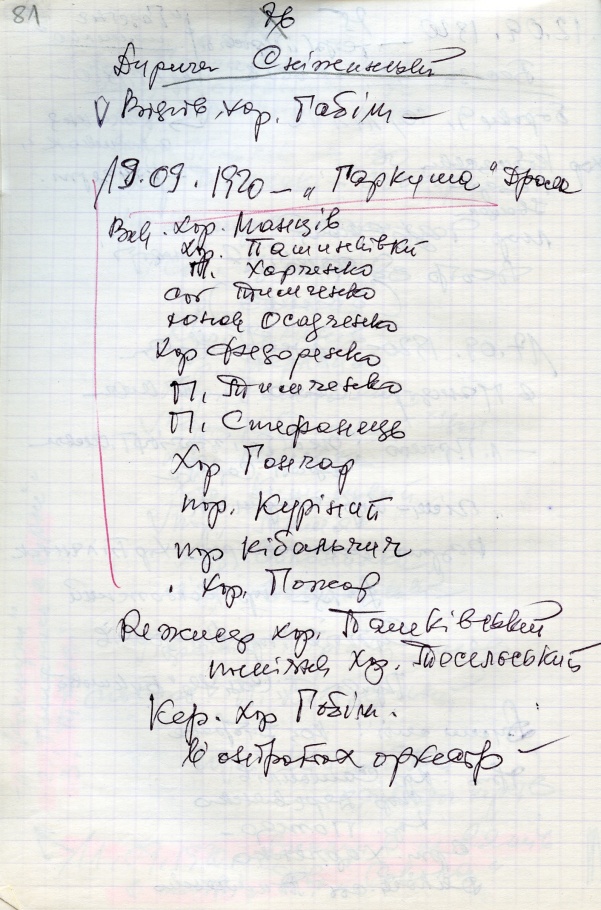 81
76
Дириген Сніжинський
Відчів. хор. Габіль —
19.09.1920 — „Гаркуша" Драма
Вик. хор. Манців
Хор. Пашинківський
П. Харченко
сот Тимченко
хонаж Осадченко
хор Федоренко
П. Тимченко
П. Стефанець
Хор Гончар
пор. Курінний
пор Кібальчич
. Хор. Пожар
Режисер хор. Пашківський
хор. Посельський
Кер. хор Габіль.
В антрактах оркестр —